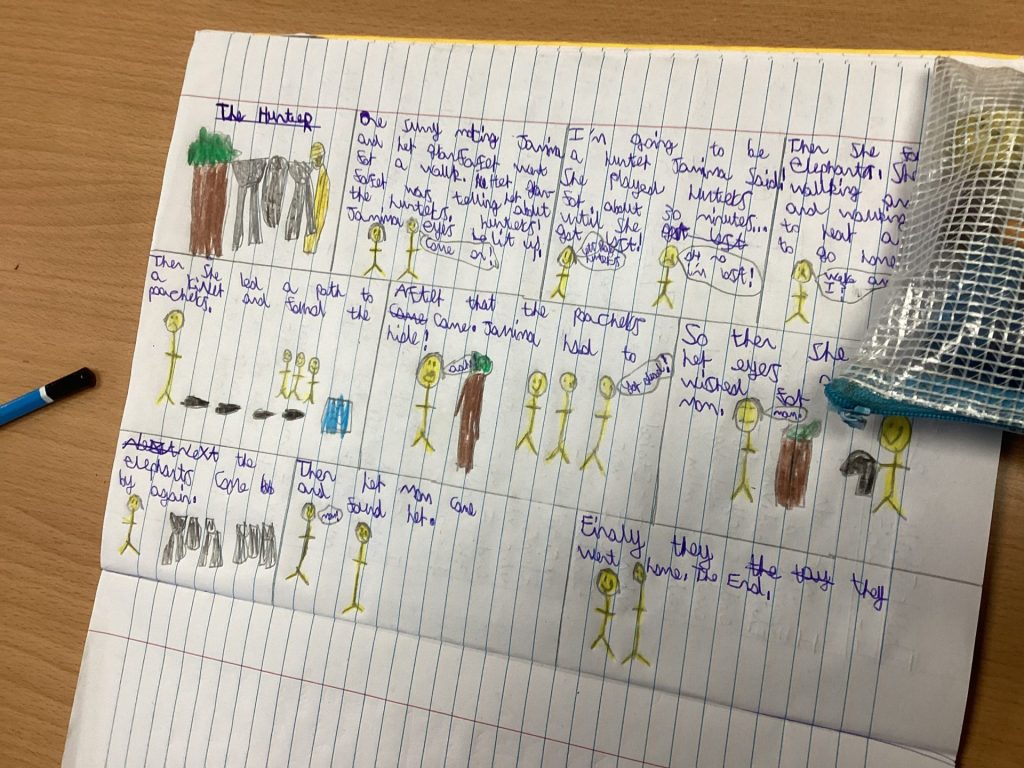 The Hunter
One sunny moting Janina
and her granfarfot went
for a walk. Her gran-
farfet was telling her about
the hunters. hunters!
Janina eyes be lit up.
Come on!
I'm going to be
a hunter Janina said!
She played hunters
for about 30 minutes...
until she got lost
got lost!
oh no
i'm lost!
Then She
elephants. She
walking
and walking
to hear a
to go home
I!
Then She led a path to
a river and found the
poachers.
After that the poachers
came came. Janina had to
hide!
So then she
her eyes
wished for
mom.
mom!
Next the
elephants came
by again.
Then her mom came
and found her.
mom
Finaly they the they they
went home. The End.